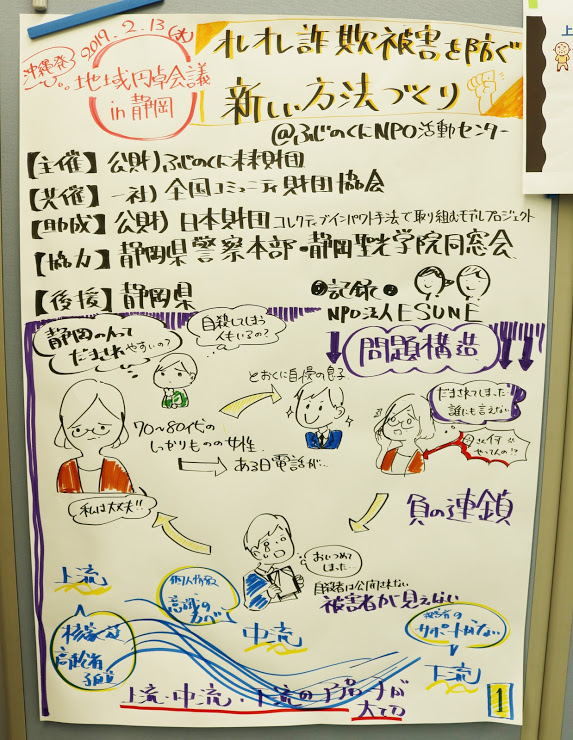 2019.2.13(水)
沖縄発!
地域円卓会議
in 静岡
オレオレ詐欺被害を防ぐ
新しい方法づくり
@ふじのくにNPO活動センター
【主催】公財)ふじのくに未来財団
【共催】一社)全国コミュニティ財団協会
【助成】公財)日本財団 コレクティブインパクト手法で取り組むモデルプロジェクト
【協力】静岡県警察本部・静岡聖光学院同窓会
【後援】静岡県
記録
NPO法人ESUNE
静岡の人って
だまされやすいの?
自殺してしまう
人もいるの?
問題構造
とおくに自慢の息子
70〜80代の
しっかりものの女性
ある日電話が…
だまされてしまった
誰にも言えない
やってんの!?
私は大丈夫!!
負の連鎖
おいつめて
しまった
自殺者は公開されない
被害者が見えない
上流
核家族
高齢者
個人情報
意識のカベ
中流
被害者の
サポートがない
下流
上流・中流・下流のアプローチが
大切
1
上